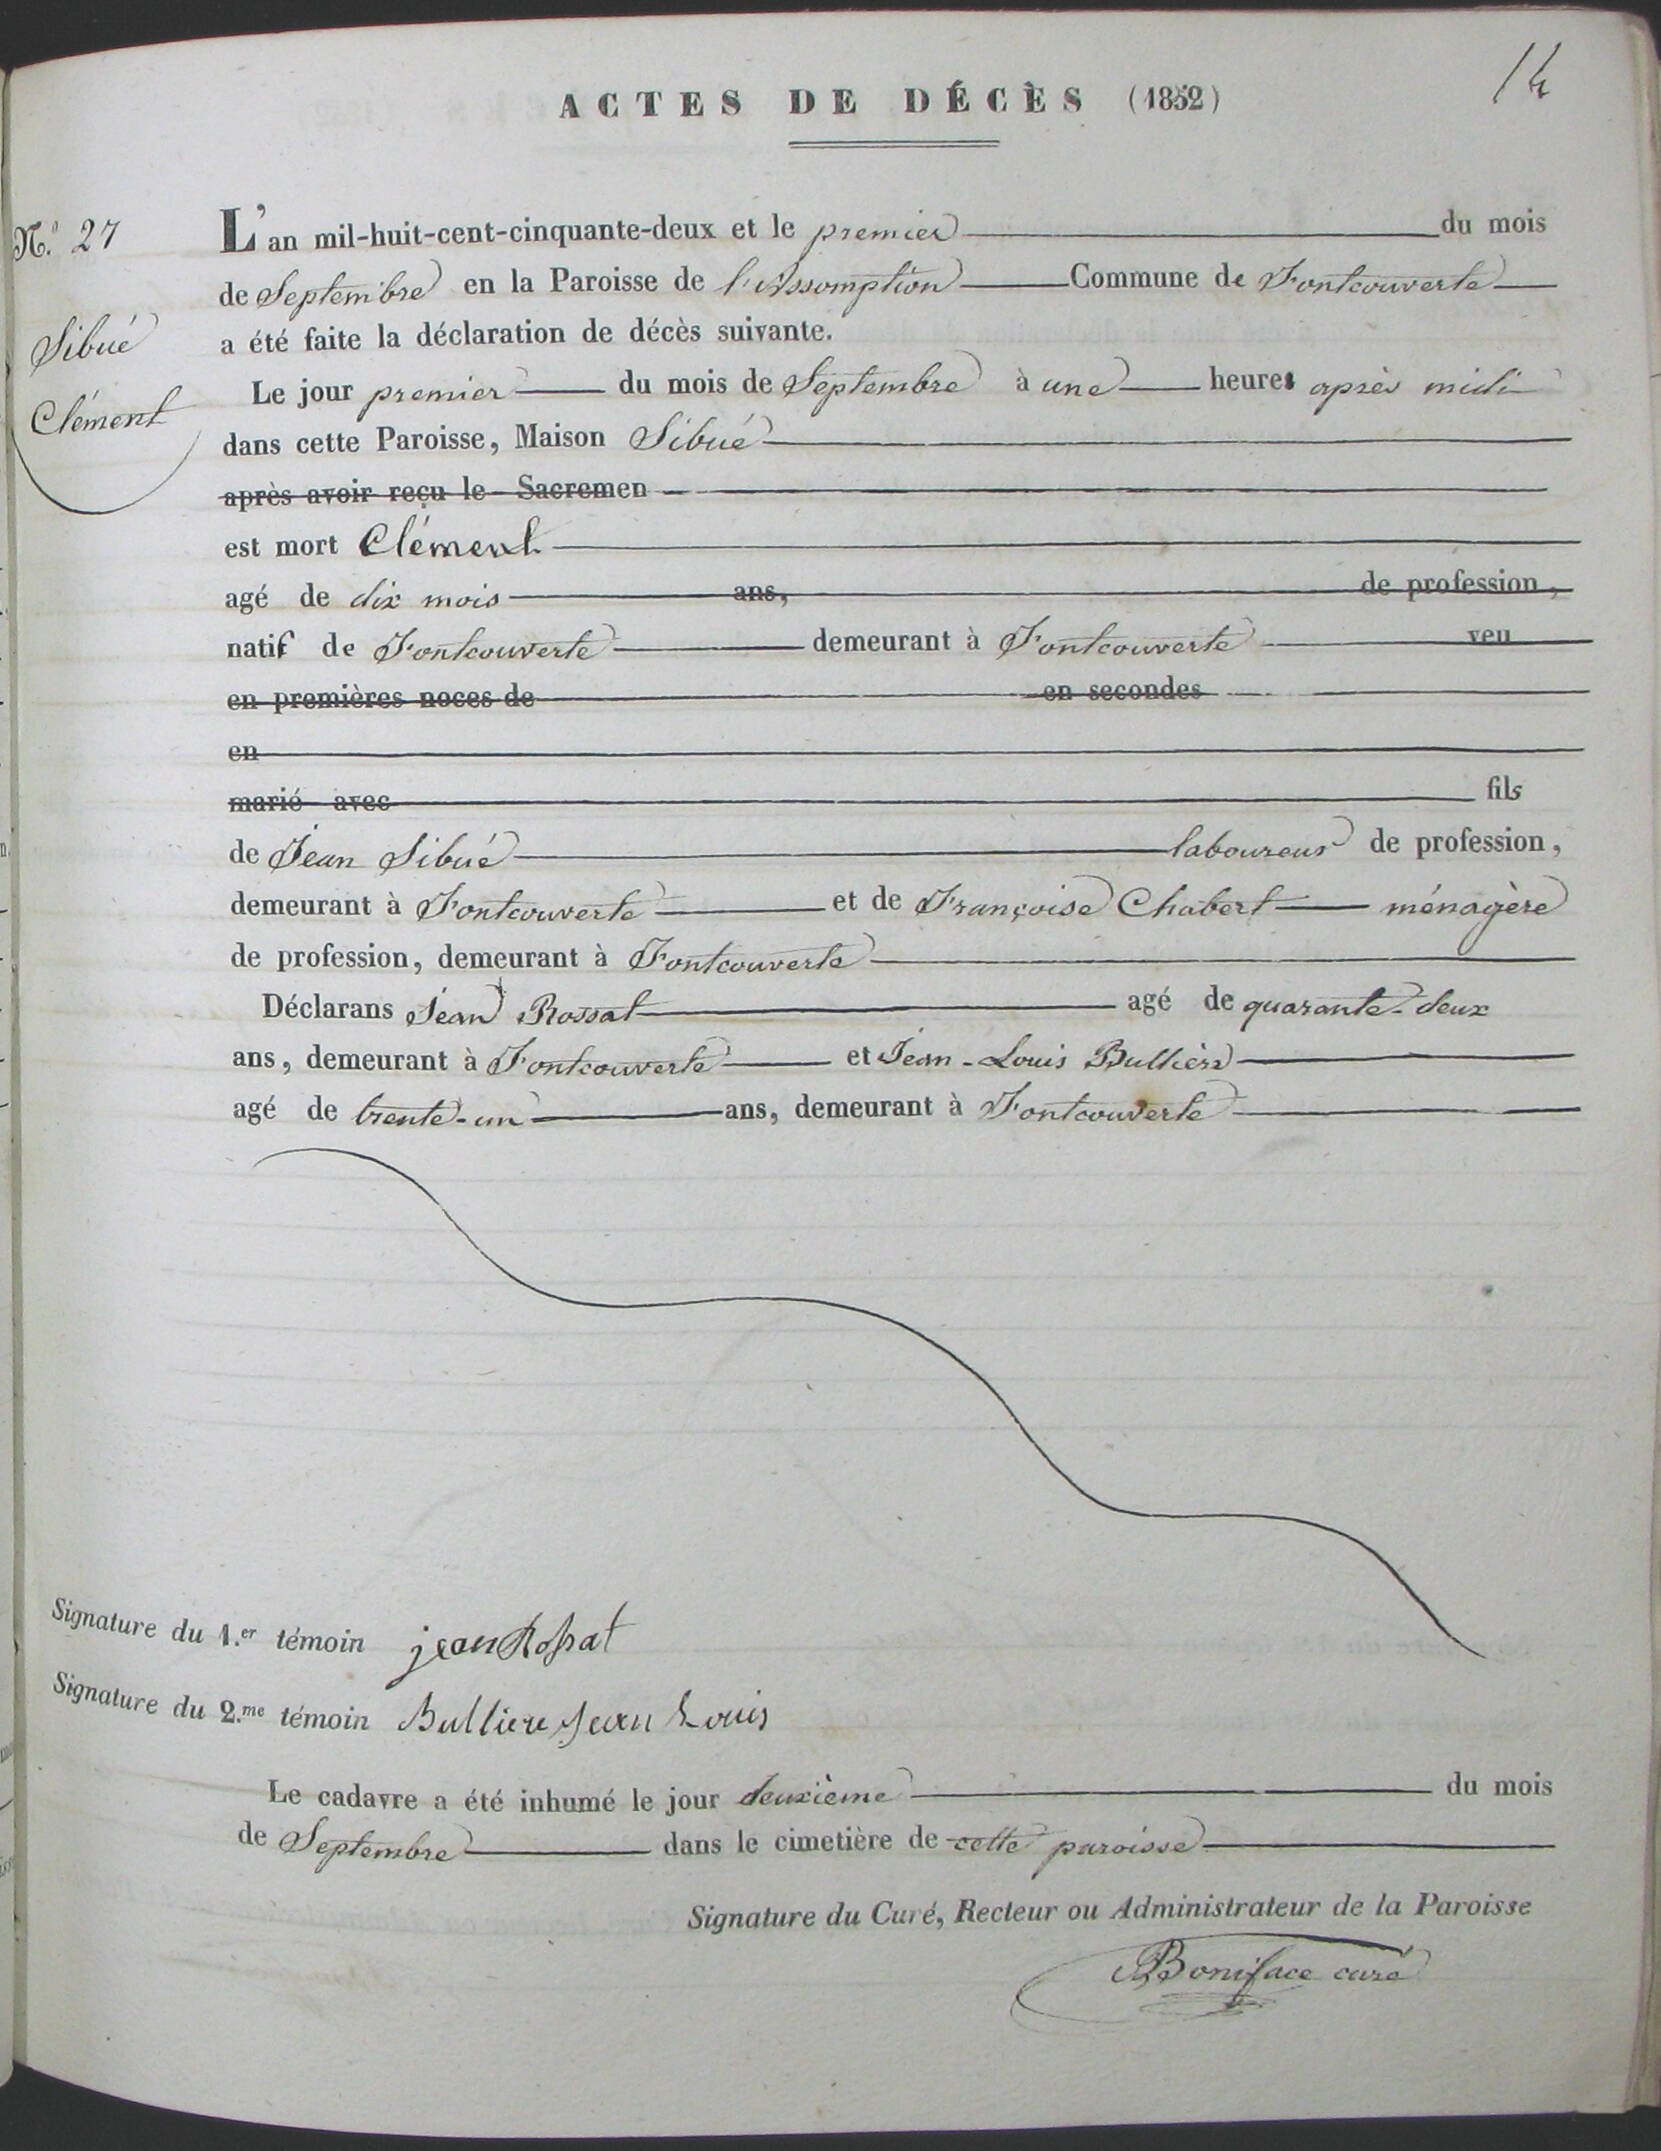 ACTES DE DÉCÈS (1852)
14
N.º 27
Sibué
Clément
L'an mil-huit-cent-cinquante-deux et le premier du mois
de Septembre en la Paroisse de l'Assomption Commune de Fontcouverte
a été faite la déclaration de décès suivante.
Le jour premier du mois de Septembre à une heures après midi
dans cette Paroisse, Maison Sibué
après avoir reçu le Sacremen
est mort Clément
agé de dix mois ans, de profession,
natif de Fontcouverte demeurant à Fontcouverte veu
en premières noces de en secondes
en
marié avec fils
de Jean Sibué laboureur de profession,
demeurant à Fontcouverte et de Françoise Chabert ménagère
de profession, demeurant à Fontcouverte
Déclarans Jean Rossat agé de quarante-deux
ans, demeurant à Fontcouverte et Jean-Louis Bullière
agé de trente-un ans, demeurant à Fontcouverte
Signature du 1.er témoin jean Rossat
Signature du 2.me témoin Bulliere Jean Louis
Le cadavre a été inhumé le jour deuxième du mois
de Septembre dans le cimetière de cette paroisse
Signature du Curé, Recteur ou Administrateur de la Paroisse
Boniface curé